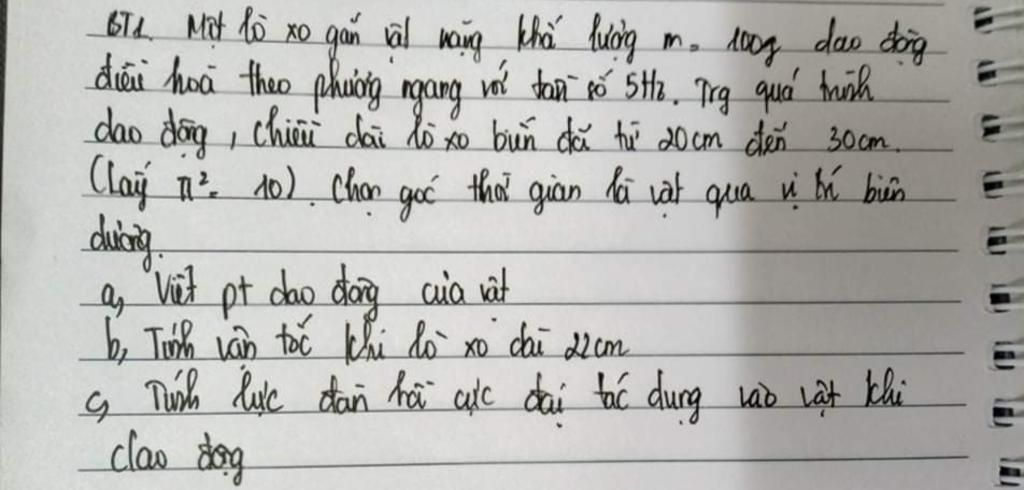 BT1. Một lò xo gắn vật nặng khố lượng m = 100g dao động
điều hoà theo phương ngang với tần số 5Hz. Trg quá trình
dao động, chiều dài lò xo biến đổi từ 20cm đến 30cm.
(lấy π² = 10). Chọn gốc thời gian là vật qua vị trí biên
dương.
a, Viết pt dao động của vật
b, Tính vận tốc khi lò xo dài 22cm
c, Tính lực đàn hồi cực đại tác dụng vào vật khi
dao động